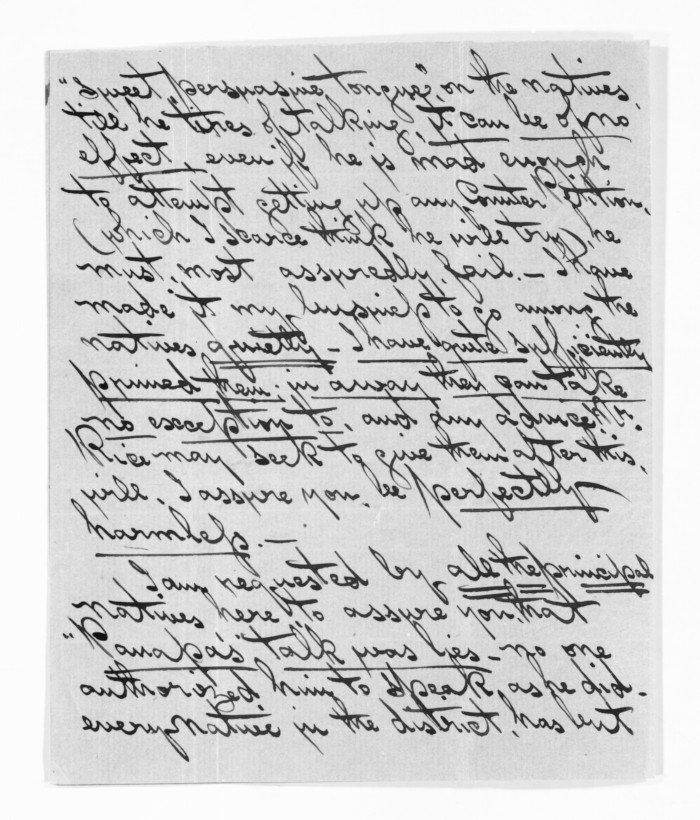 "sweet, persuasive tongue" on the natives,
till he tires of talking, it can be of no
effect, even if he is mad enough
to attempt getting up any counter Petition,
(which I scarce think he will try) he
must most assuredly fail — I have
made it my to go among the
natives quietly — I have quite sufficiently
primed them, in a way they can take
no exception to, and any advice Mr.
Price may seek to give them after this,
will, I assure you, be perfectly
harmless. —
I am requested by all the principal
natives here to assure you that
talk was lies — no one
authorized him to speak as he did —
every native in the district has but